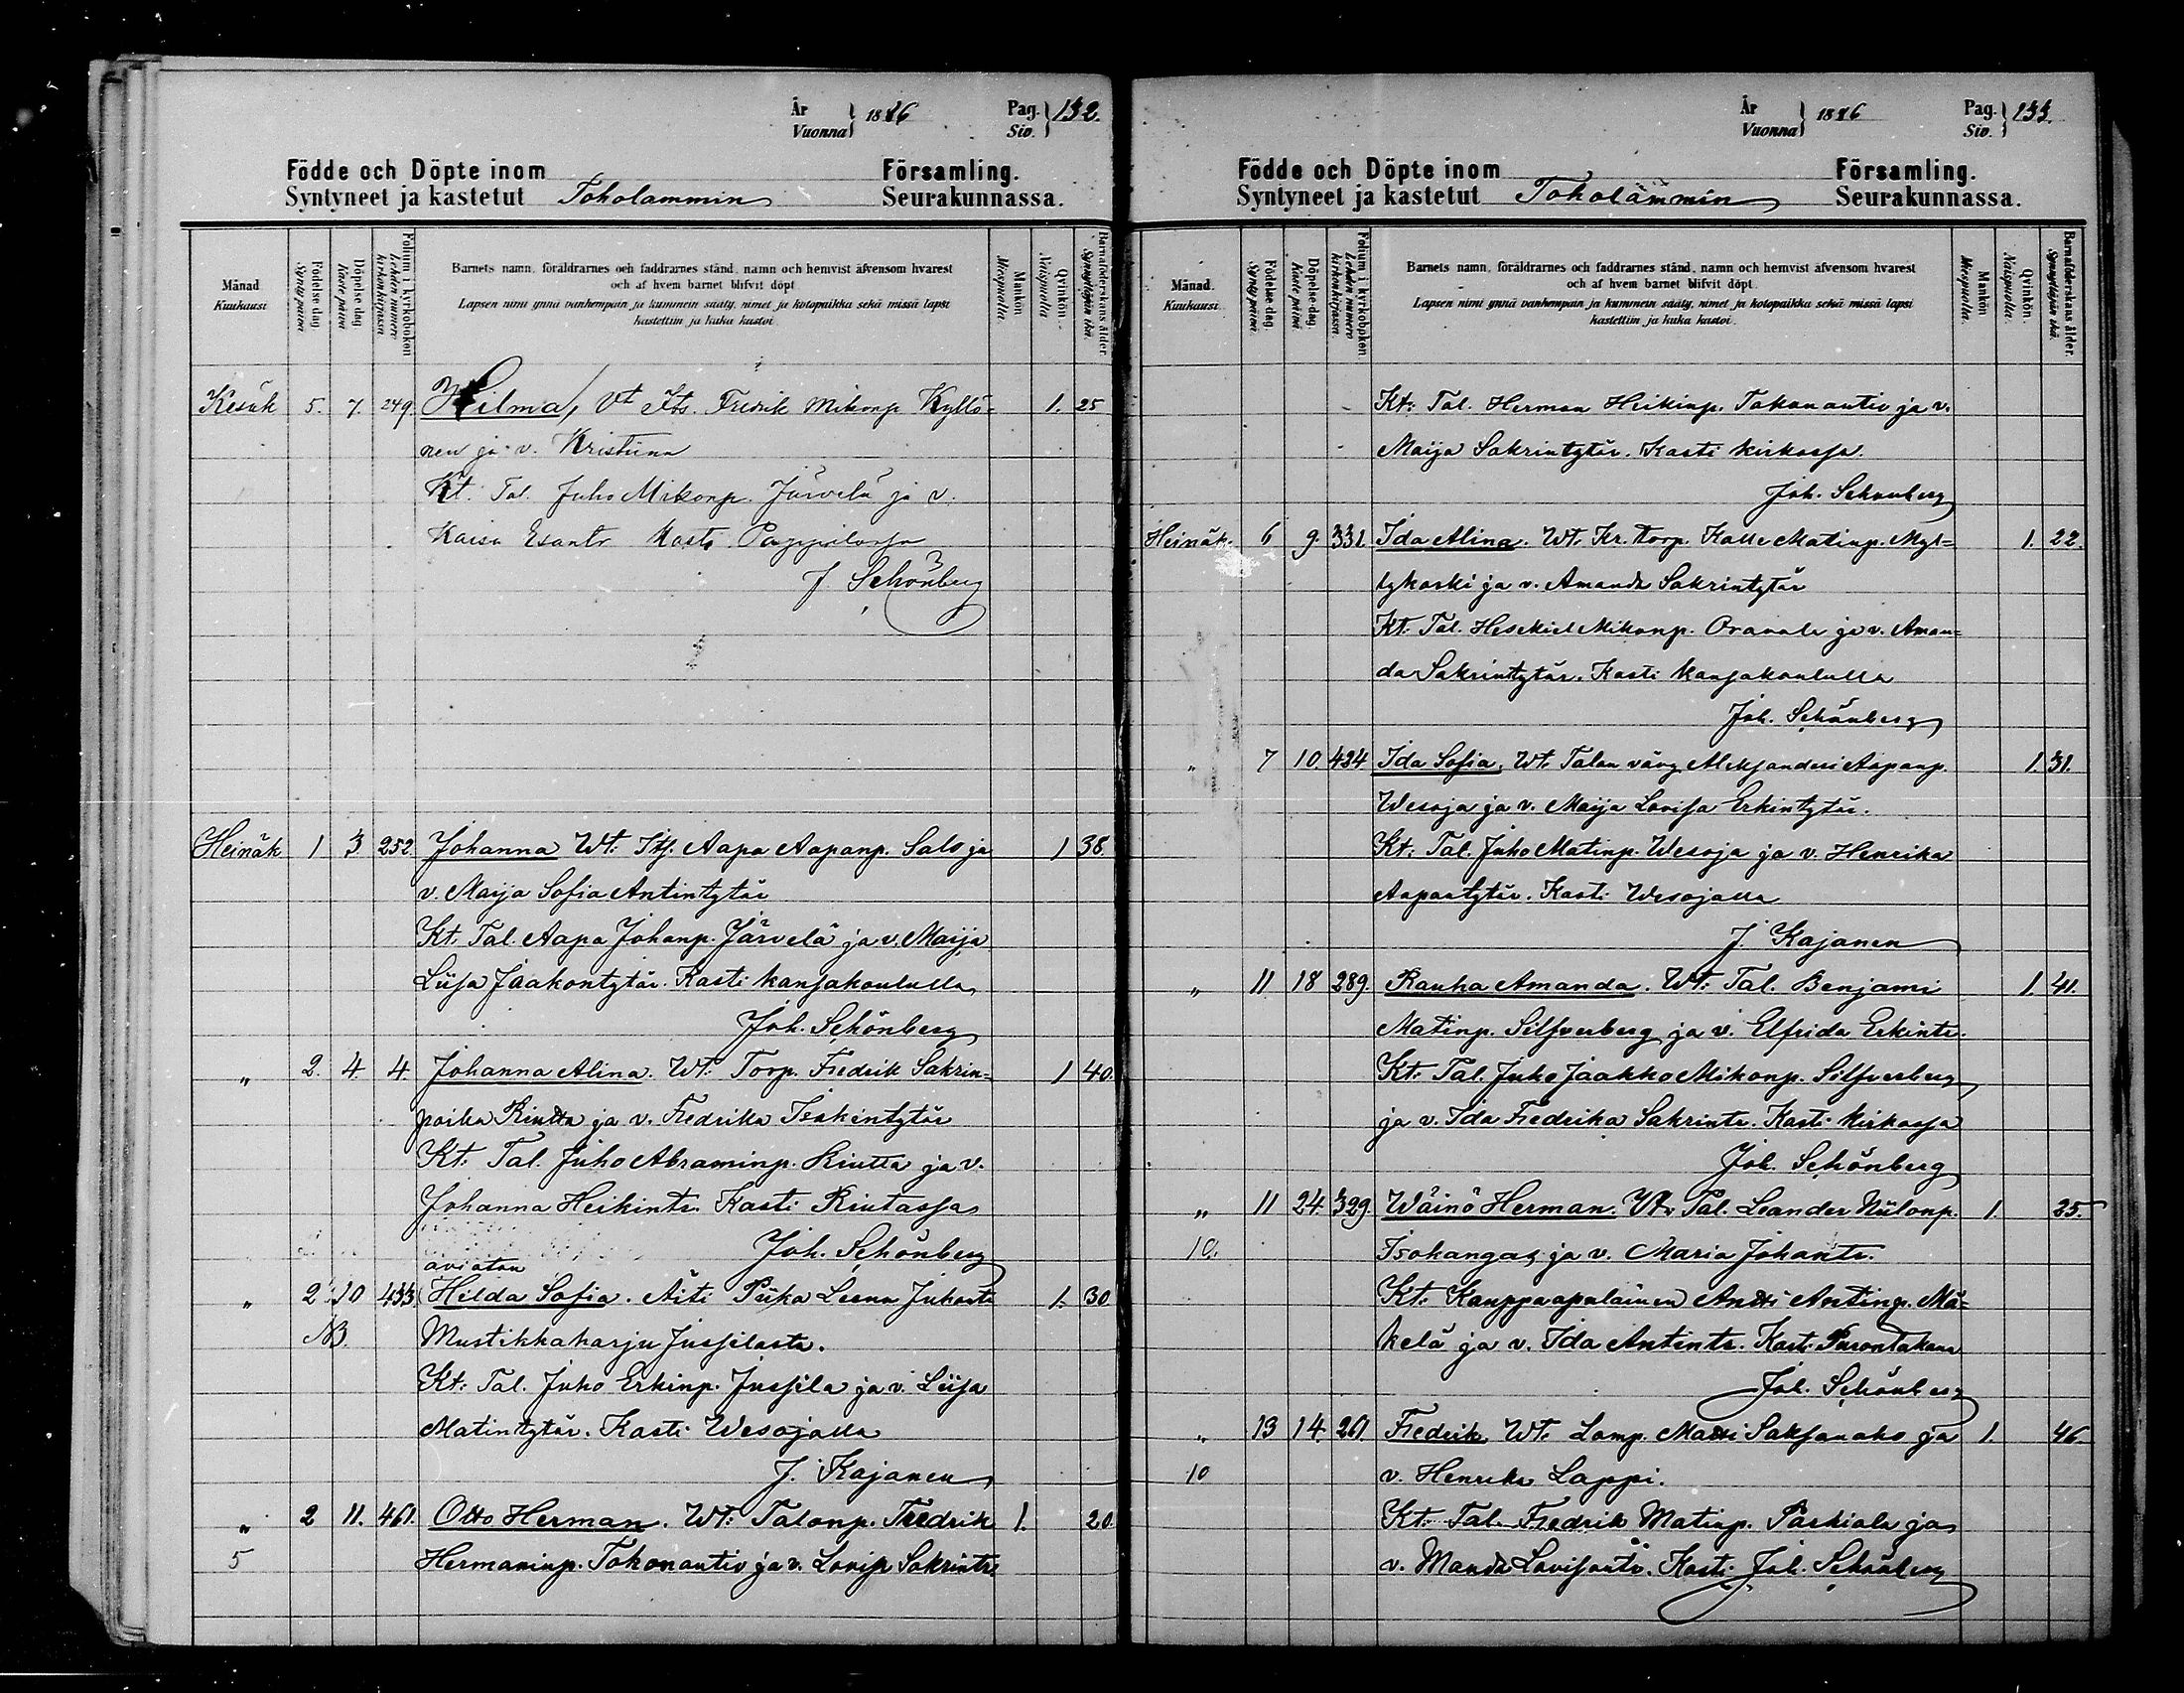 År
Vuonna } 1886 Pag.
Siv. } 132.
Födde och Döpte inom Församling.
Syntyneet ja kastetut Toholammin Seurakunnassa.
Månad
Kuukausi
Födelse dag
Synty päivä
Döpelse dag
Kaste päivä
Folium i kyrkoboken
Lehden numero kirkonkirjassa
Barnets namn, föräldrarnes och faddrarnes stånd, namn och hemvist äfvensom hvarest
och af hvem barnet blifvit döpt
Lapsen nimi ynnä vanhempain ja kummein sääty, nimet ja kotopaikka sekä missä lapsi
kastettiin ja kuka kastoi
Mankön
Miespuolia.
Qvinkön.
Naispuolia
Barnaföderskans ålder.
Synnyttäjän ikä.
Kesäk 5. 7. 249. Hilma, Vt Its. Fredrik Mikonp. Kyllö- 1. 25
nen ja v. Kristiina
Kt. Tal. Juho Mikonp. Järvelä ja v.
Kaisa Esantr Kasti Pappilassa
J. Schönberg
Heinäk 1 3 252. Johanna Wt. Its. Aapa Aapanp. Salo ja 1 38.
v. Maija Sofia Antintytär
Kt. Tal. Aapa Johanp. Järvelä ja v. Maija
Liisa Jaakontytär. Kasti kansakoululla
Joh. Schönberg
" 2. 4. 4. Johanna Alina. Wt. Torp. Fredrik Sakrin= 1 40.
poika Riutta ja v. Fredrika Isakintytär
Kt. Tal. Juho Abraminp. Riutta ja v.
Johanna Heikintr. Kasti Riutassa
Joh. Schönberg
aviaton
" 2 10 433 Hilda Sofia. Äiti Piika Leena Juhontr 1. 30
NB. Mustikkaharju Jussilasta.
Kt. Tal. Juho Erkinp. Jussila ja v. Liisa
Matintytär. Kasti Wesojalla
J. Kajanen
" 2 11. 461. Otto Herman. Wt: Talonp. Fredrik 1. 20
5 Hermaninp. Tokonautio ja v. Lovisa Sakrintr.
År
Vuonna } 1886 Pag.
Siv. } 133.
Födde och Döpte inom Församling.
Syntyneet ja kastetut Toholammin Seurakunnassa.
Månad.
Kuukausi.
Födelse dag.
Synty päivä.
Döpelse dag.
Kaste päivä.
Folium i kyrkoboken
Lehden numero kirkonkirjassa.
Barnets namn, föräldrarnes och faddrarnes stånd, namn och hemvist äfvensom hvarest
och af hvem barnet blifvit döpt.
Lapsen nimi ynnä vanhempain ja kummein sääty, nimet ja kotopaikka sekä missä lapsi
kastettiin ja kuka kastoi.
Mankön
Miespuolia.
Qvinkön.
Naispuolia.
Barnaföderskans ålder.
Synnyttäjän ikä.
Kt: Tal. Herman Heikinp. Tokonautio ja v.
Maija Sakrintytär. Kasti kirkossa.
Joh. Schönberg
Heinäk. 6 9. 331. Ida Alina. Wt. Kr. torp. Kalle Matinp. Myl= 1. 22.
lykoski ja v. Amanda Sakrintytär
Kt. Tal. Hesekiel Mikonp. Oravala ja v. Aman=
da Sakrintytär. Kasti kansakoululla
Joh. Schönberg
" 7 10. 424 Ida Sofia. Wt. Talon väv. Aleksanderi Aapanp. 1. 31.
Wesoja ja v. Maija Lovisa Erkintytär.
Kt. Tal. Juho Matinp. Wesoja ja v. Henrika
Aapantytär. Kasti Wesojalla
J. Kajanen
" 11 18 289. Rauha Amanda. Wt: Tal. Benjami 1. 41.
Matinp. Silfverberg ja v. Elfrida Erkintr.
Kt. Tal. Juho Jaakko Mikonp. Silfverberg
ja v. Ida Fredrika Sakrintr. Kasti kirkossa
Joh. Schönberg
" 11 24. 399. Wäinö Herman. Vt. Tal. Leander Niilonp. 1. 25.
10. Isohangas, ja v. Maria Johantr.
Kt: Kauppaapulainen Antti Antinp. Mä=
kelä ja v. Ida Antintr. Kasti Purontakana
Joh. Schönberg
" 13 14. 261. Fredrik Wt. Lamp. Matti Saksanaho ja 1. 46.
10 v. Henrika Lappi.
Kt: Tal. Fredrik Matinp. Parkiala ja
v. Manda Lovisantr. Kasti Joh. Schönberg